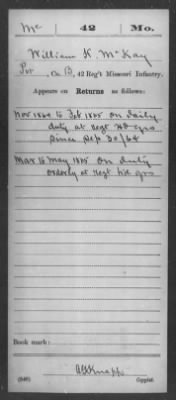 Mc 42 Mo.
William K. McKay
Pvt, Co. B, 42 Reg't Missouri Infantry.
Appears on Returns as follows:
Nov 1864 to Feb 1865 on daily
duty at Regt Hd Qrs
since Sep 30/64
Mar to May 1865 on duty
orderly at Regt Hd Qrs
Book mark:
Knapp
(546) Copyist.